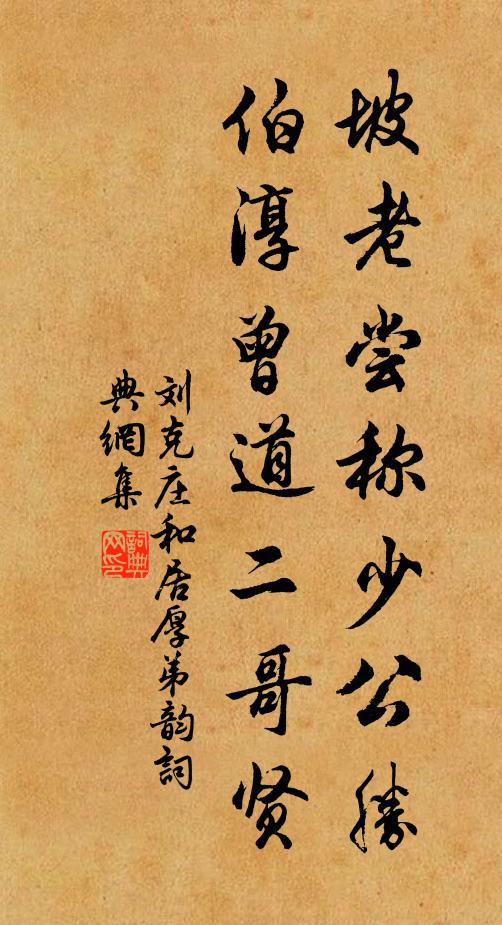 坡老尝称少公胜
伯淳曾道二哥贤
刘克庄和居厚弟韵词
典網集
詞典
网印